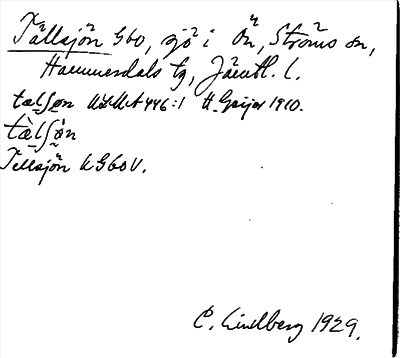 Tällsjön Gbo, sjö i Ön, Ströms sn,
Hammerdals tg, Jämtl. l.
tælʃøn ULMA 446:1 H. Geijer 1910.
tælʃøn
Tellsjön KGboV.
C. Lindberg 1929.